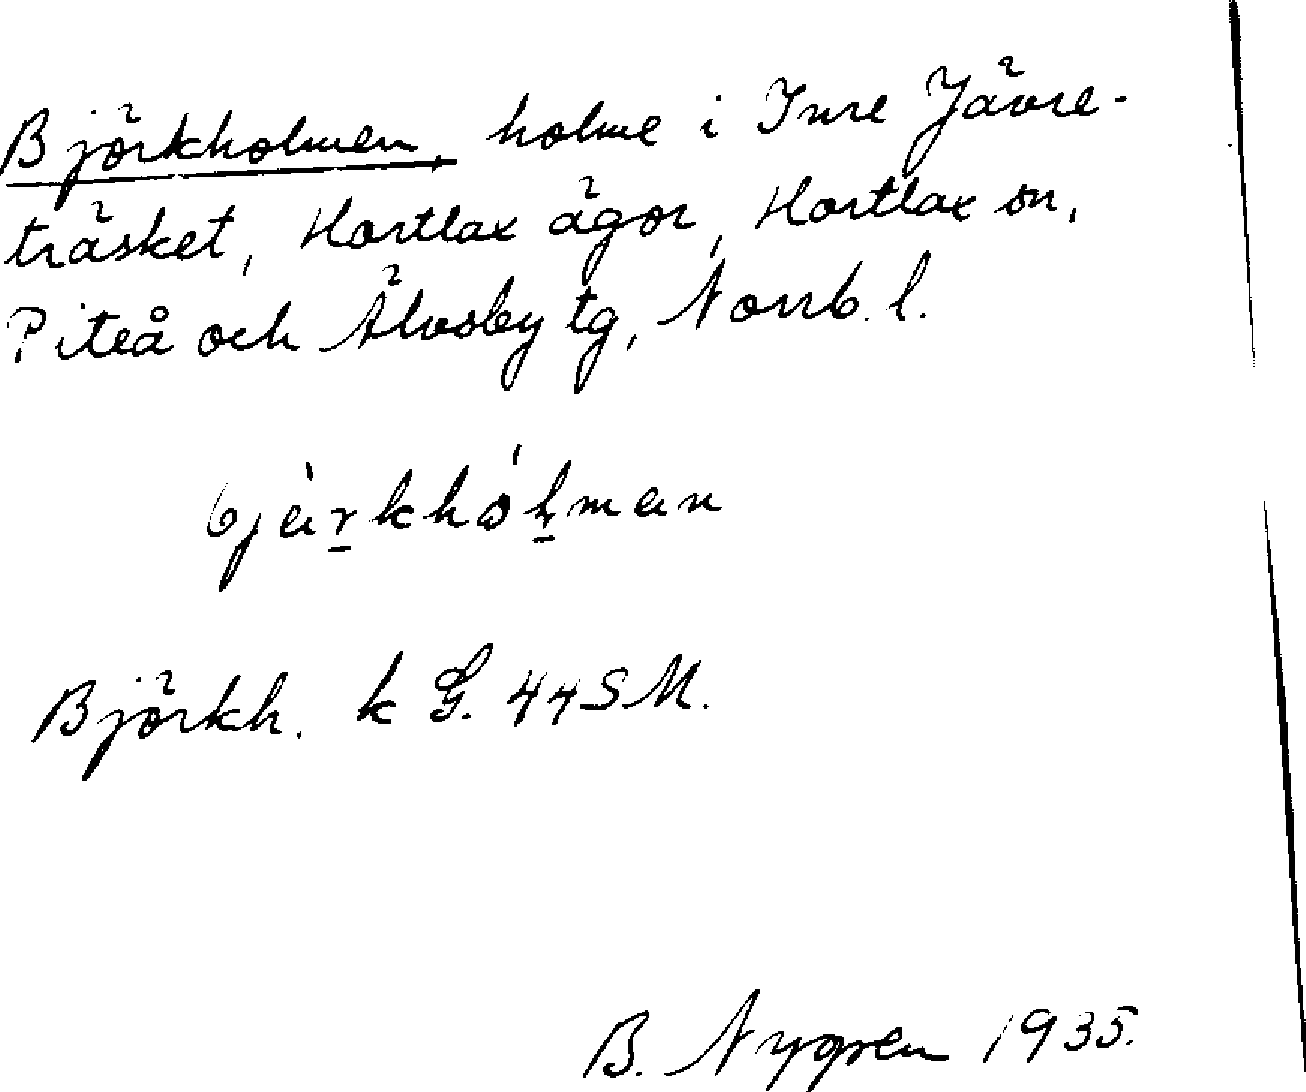 Björkholmen, holme i Inre Jävre-
träsket, Hortlax ägor, Hortlax sn,
Piteå och Älvsby tg, Norrb. l.
bjèrkhólmen
Björkh. k G. 44SM.
B. Nygren 1935.